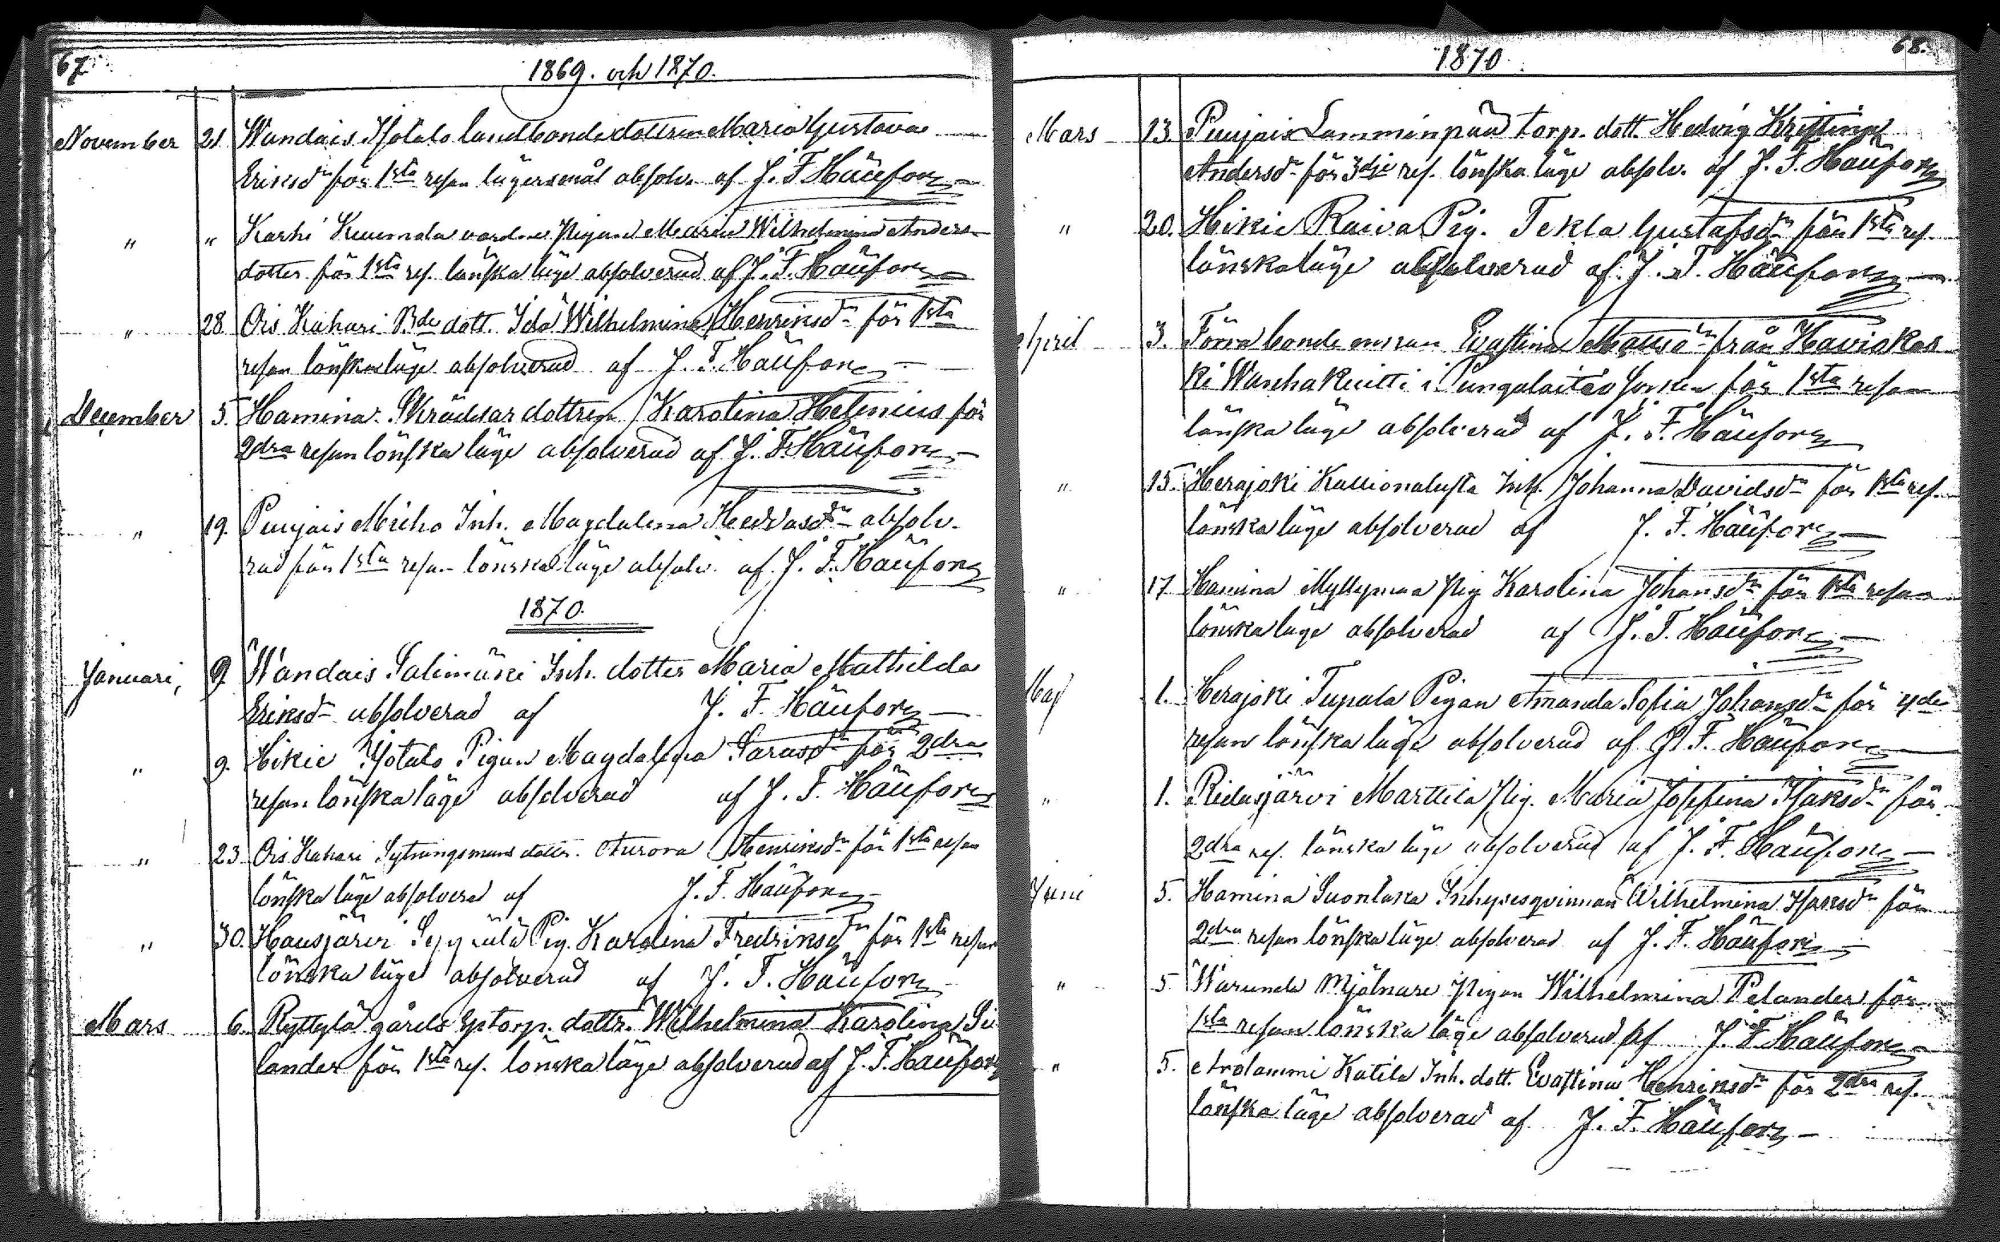 67.
1869. och 1870.
November 21 Wandais Isotalo landbondedottren Maria Gustava
Eriksdr för 1sta resan lägersmål absolv. af J. F. Häüfors
" " Karhi vardnes Pigan Maria Wilhelmina Anders-
dotter för 1sta res. lönskaläge absolverad af J. F. Häüfors
" 28 Ois Kahari Bde dott. Ida Wilhelmina Henriksdr för 1sta
resan lönskaläge absolverad af J. F. Häüfors
December 5. Hamina Skräddar dottren Karolina Helenius för
2dra resan lönskaläge absolverad af J. F. Häüfors
" 19. Puujais Inh. Magdalena absolv-
rad för 1sta resan lönskaläge absolv. af J. F. Häüfors
1870.
Januari, 9. Wandais Salimäki Inh. dotter Maria Mathilda
Eriksdr absolverad af J. F. Häüfors
" 9. Hikie Isotalo Pigan Magdalena för 2dra
resan lönskaläge absolverad af J. F. Häüfors
" 23. Ois Kahari Sytningsmans dottr. Aurora Henriksdr för 1sta resan
lönskaläge absolverad af J. F. Häüfors
" 30. Hausjärvi Seppälä Pig. Karolina Fredriksdr för 1sta resan
lönskaläge absolverad af J. F. Häüfors
Mars 6. Ryttylä gårds torp. dottr. Wilhelmina Karolina Si-
lander för 1sta res. lönskaläge absolverad af J. F. Häüfors
68.
1870.
Mars 13. Puujais Lamminpää torp. dott. Hedvig Kristina
Andersdr för 3dje res. lönskaläge absolv. af J. F. Häüfors
" 20. Hikie Raiva Pig. Tekla Gustafsdr för 1sta res.
lönskaläge absolverad af J. F. Häüfors
April 3. Förra bonde enkan Evastina från Haviokos
ki i för 1sta resan
lönskaläge absolverad af J. F. Häüfors
" 15. Herajoki Kallionalusta Inh. Johanna Davidsdr för 1sta res.
lönskaläge absolverad af J. F. Häüfors
" 17 Hamina Myllymaa Pig Karolina Johansdr för 1sta resan
lönskaläge absolverad af J. F. Häüfors
Maj 1. Herajoki Tupala Pigan Amanda Sofia Johansdr för 4de
resan lönskaläge absolverad af J. F. Häüfors
" 1. Ridasjärvi Marttila Pig. Maria Josefina Isaksdr för
2dra res. lönskaläge absolverad af J. F. Häüfors
Juni 5. Hamina Suontaka Inhysesqvinnan Wilhelmina Isaksdr för
2dra resan lönskaläge absolverad af J. F. Häüfors
" 5 Warunda Mjölnare Pigan Wilhelmina Pelander för
1sta resan lönskaläge absolverad af J. F. Häüfors
" 5. Arolammi Katila Inh. dott. Evastina Henriksdr för 2dra res.
lönskaläge absolverad af J. F. Häüfors